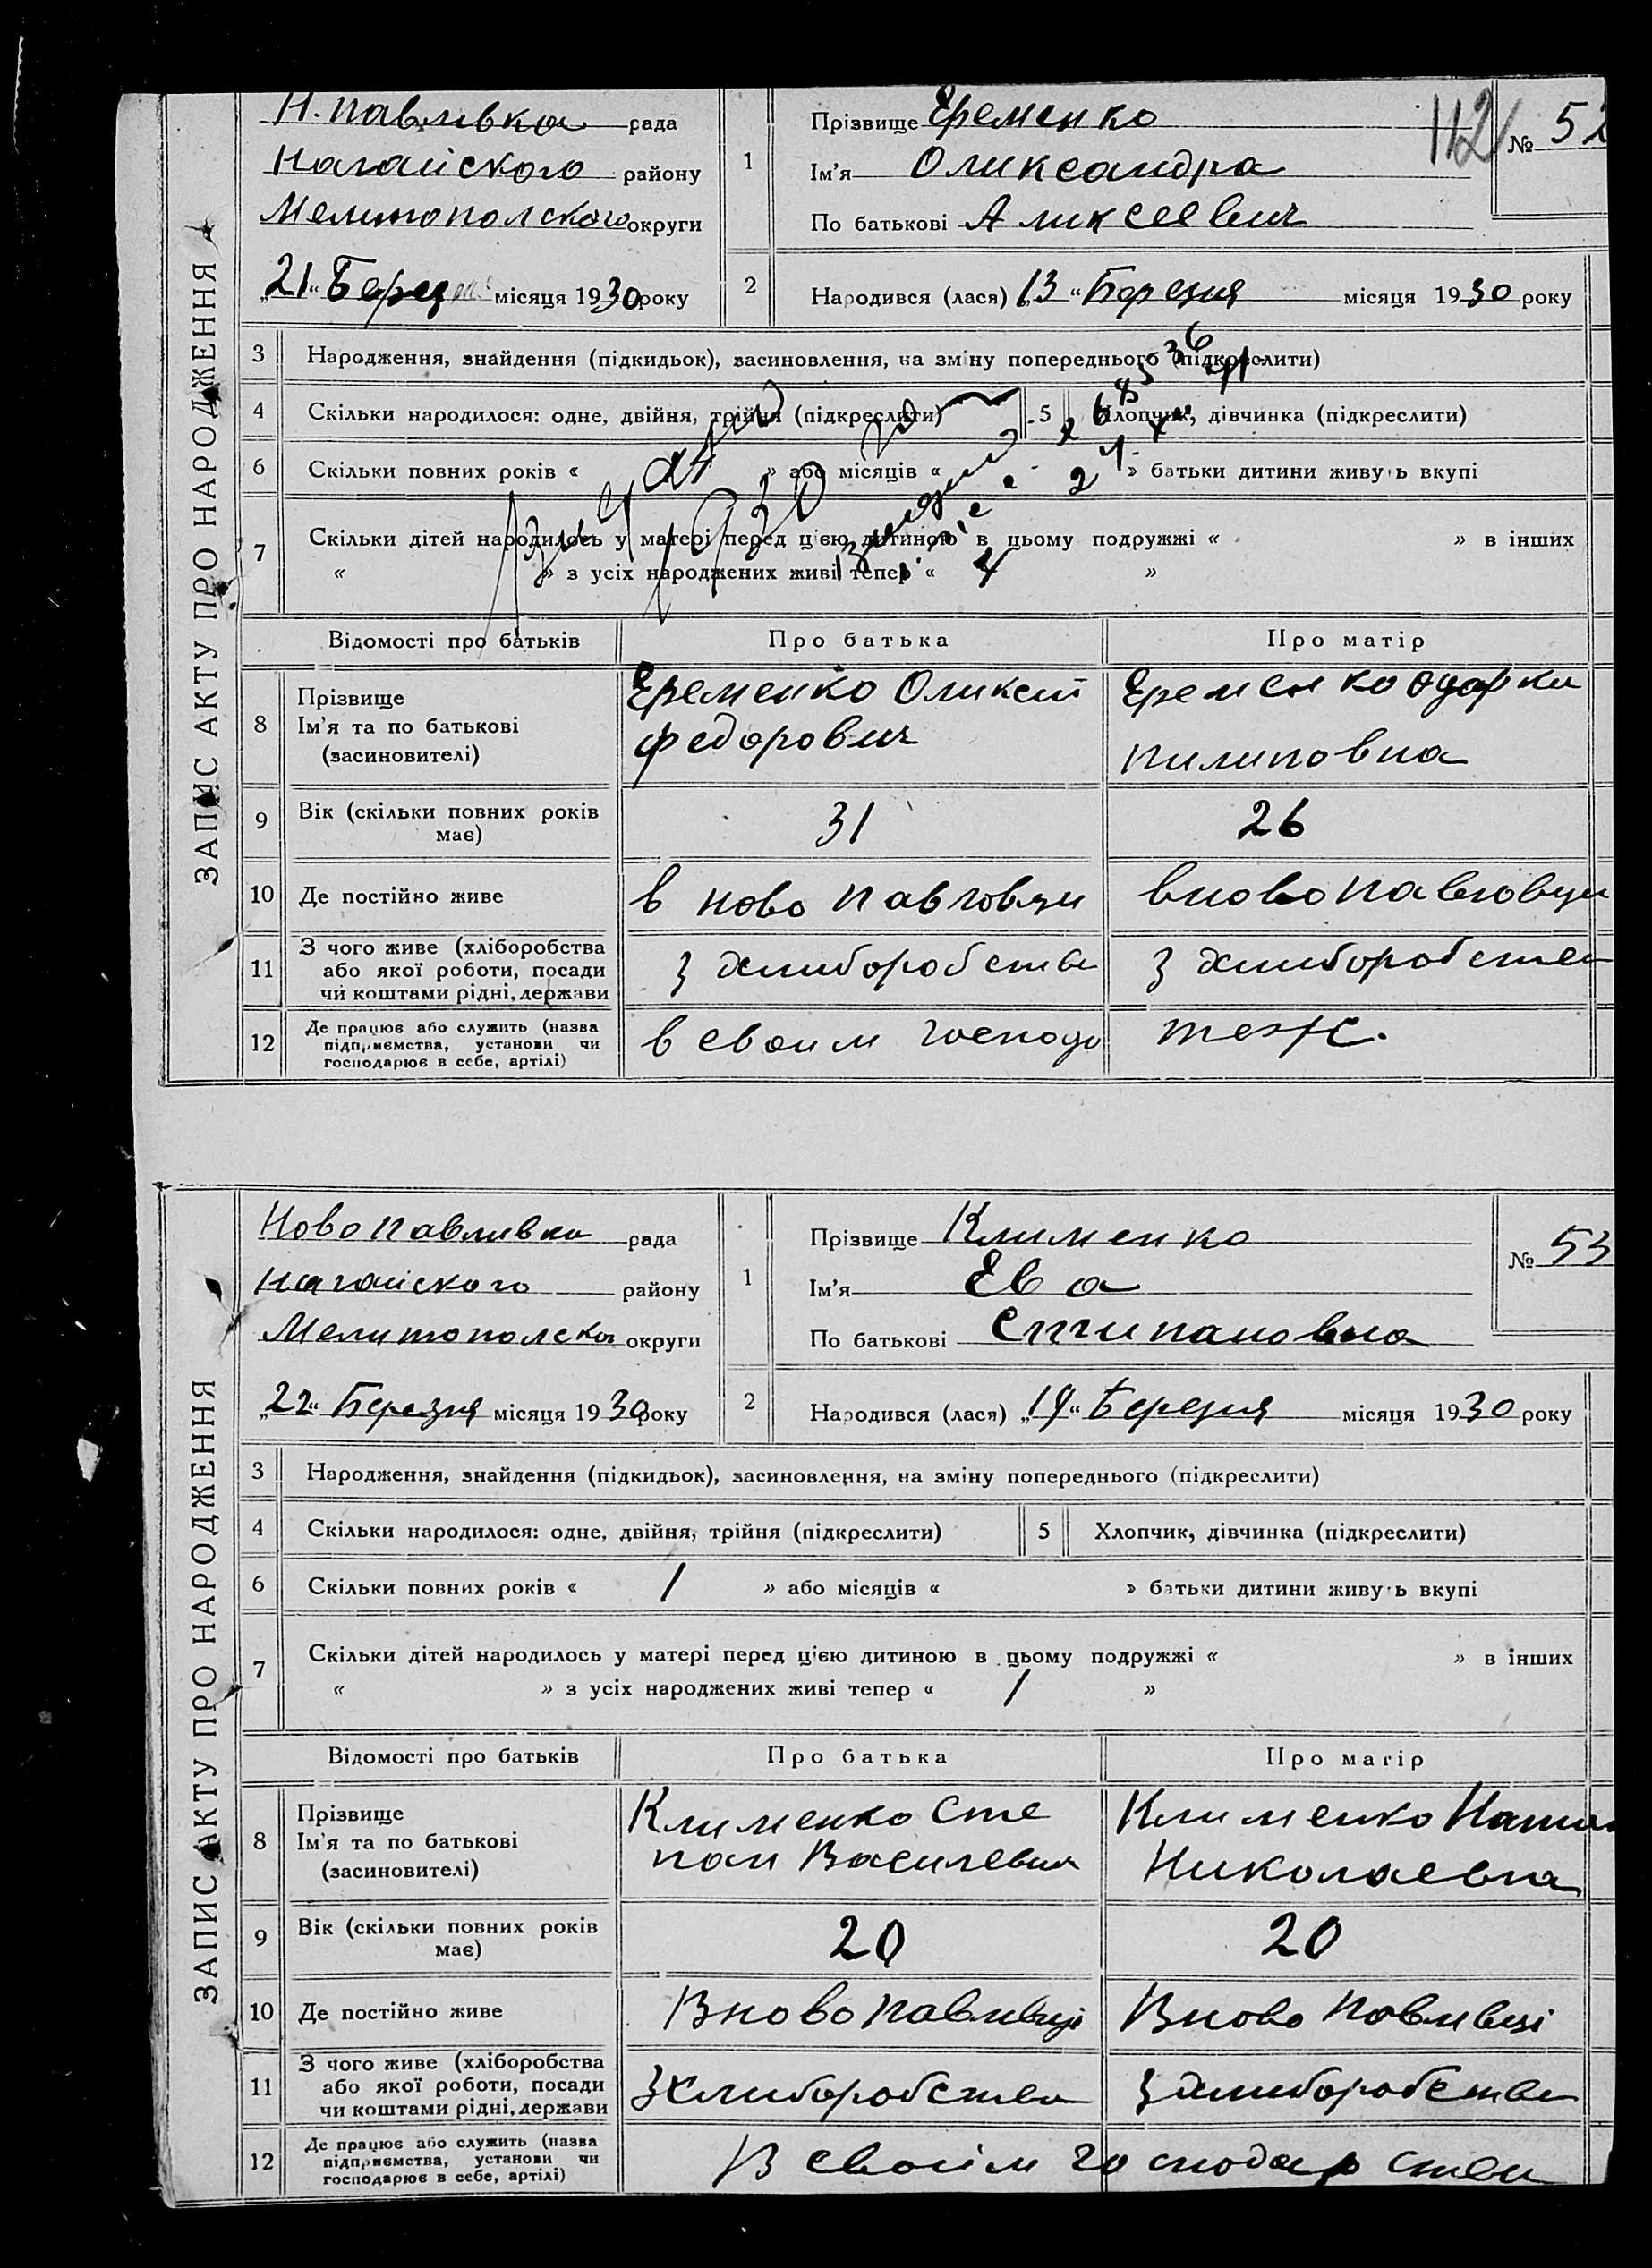 ЗАПИС АКТУ ПРО НАРОДЖЕННЯ
Н. Павливка рада
Нагайского району
Мелитополского округи
„21“ Берез місяця 1930 року
1
Прізвище Єременко
Ім’я Оликсандра
По батькові Аликсеевич
112
№ 52
2
Народився (лася) „13“ Березня місяця 1930 року
3 Народження, знайдення (підкидьок), засиновлення, на зміну попереднього (підкреслити)
4 Скільки народилося: одне, двійня, трійня (підкреслити) 5 Хлопчик, дівчинка (підкреслити)
6 Скільки повних років « » або місяців « » батьки дитини живуть вкупі
7 Скільки дітей народилось у матері перед цією дитиною в цьому подружжі « » в інших
« » з усіх народжених живі тепер « 4 »
1930
Відомості про батьків Про батька Про матір
8 Прізвище
Ім’я та по батькові
(засиновителі)
Єременко Оликсий
Федорович
Єременко Одарки
Пилиповна
9 Вік (скільки повних років має) 31 26
10 Де постійно живе в ново Павловци вново Павловци
11 З чого живе (хліборобства
або якої роботи, посади
чи коштами рідні, держави
з хлиборобства з хлиборобства
12 Де працює або служить (назва
підприємства, установи чи
господарює в себе, артілі)
в своим господ теж.
ЗАПИС АКТУ ПРО НАРОДЖЕННЯ
Ново Павливка рада
Нагайского району
Мелитополска округи
„22“ Березня місяця 1930 року
1
Прізвище Клименко
Ім’я Ева
По батькові Стипановна
№ 53
2
Народився (лася) „19“ Березня місяця 1930 року
3 Народження, знайдення (підкидьок), засиновлення, на зміну попереднього (підкреслити)
4 Скільки народилося: одне, двійня, трійня (підкреслити) 5 Хлопчик, дівчинка (підкреслити)
6 Скільки повних років « 1 » або місяців « » батьки дитини живуть вкупі
7 Скільки дітей народилось у матері перед цією дитиною в цьому подружжі « » в інших
« » з усіх народжених живі тепер « 1 »
Відомості про батьків Про батька Про матір
8 Прізвище
Ім’я та по батькові
(засиновителі)
Клименко Сте
пан Василевич
Клименко Ната
Николаевна
9 Вік (скільки повних років має) 20 20
10 Де постійно живе Вново Павливці Вново Павливці
11 З чого живе (хліборобства
або якої роботи, посади
чи коштами рідні, держави
З хлиборобства З хлиборобства
12 Де працює або служить (назва
підприємства, установи чи
господарює в себе, артілі)
В своїм господарстви